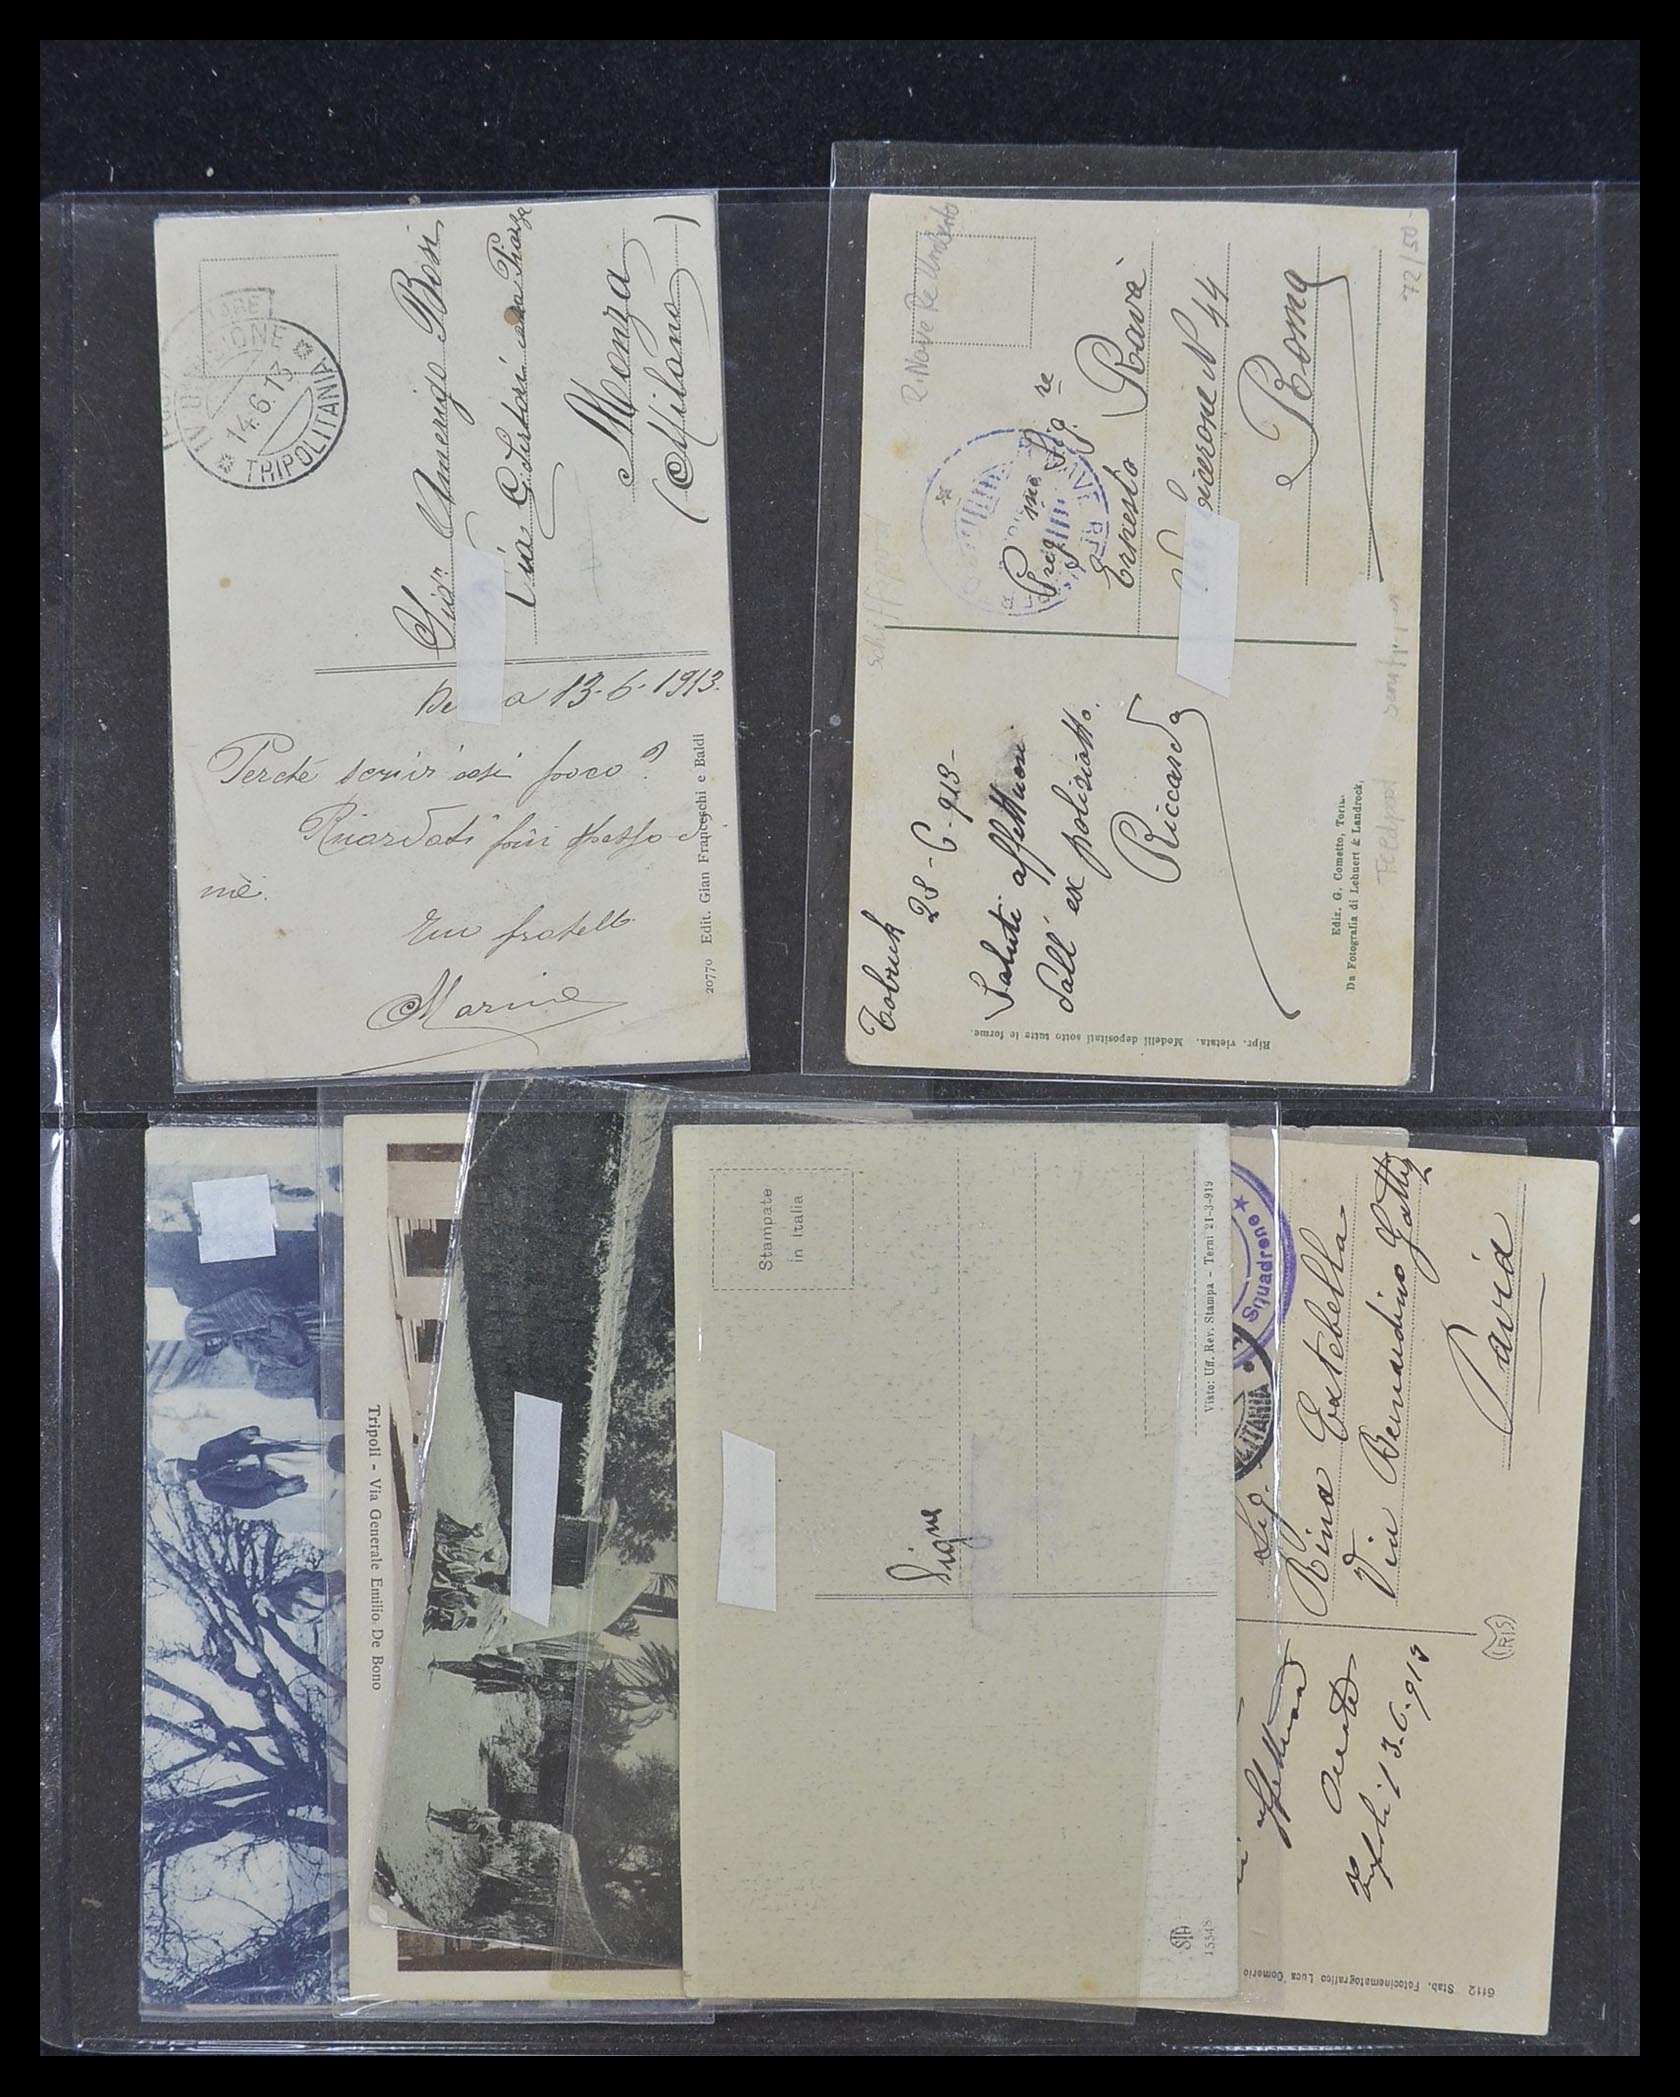 IV DIVISIONE
14.6.13
TRIPOLITANIA
Sigr Amerigo Bosi
Via G. Sirtori
Monza
(Milano)
a 13-6-1913.
Perché scrivi così poco?
Ricordati più spesso di
me.
Tuo fratello
Marino
20770 Edit. Gian Franceschi e Baldi
R. Nave Re Umberto
72/50
Schiffpost
Preg mo Sig. re
Ernesto Ravà
N 44
Roma
Tobruk
28-6-913-
Saluti affettuosi
dall' ex poliziotto.
Riccardo
Ripr. vietata. Modelli depositati sotto tutte le forme.
Ediz. G. Cometto, Torino
Da Fotografia di Lehnert & Landrock,
Feldpost
Tripoli - Via Generale Emilio De Bono
Stampate
in Italia
Visto: Uff. Rev. Stampa - Terni 21-3-919
STA
15348
Squadrone
Sig.
Rina
Via Bernardino Gatti
Pavia
13-6-913
IRIS
6112 Stab. Fotocinematografico Luca Comerio